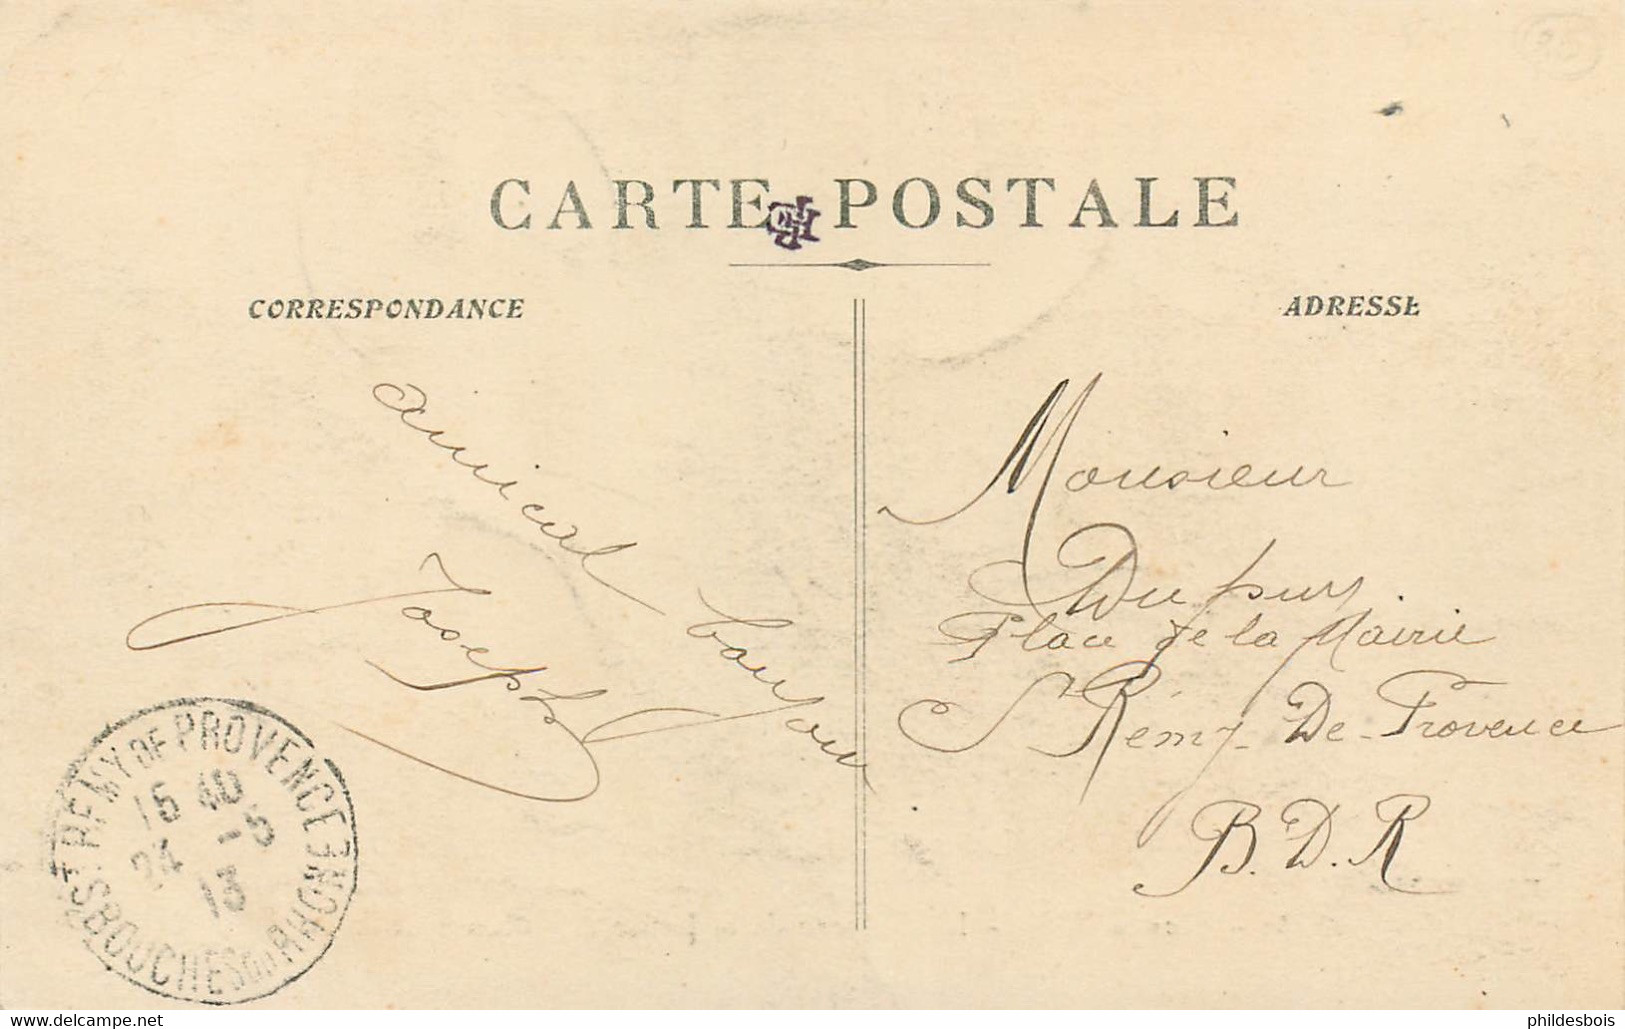 CARTE POSTALE
CORRESPONDANCE
ADRESSE
amical bonjour
Joseph
Monsieur
Dupuy
Place de la Mairie
St Rémy-De-Provence
B.D.R
ST REMY DE PROVENCE
15 40
24 -5
13
BOUCHES DU RHONE
delcampe.net
phildesbois